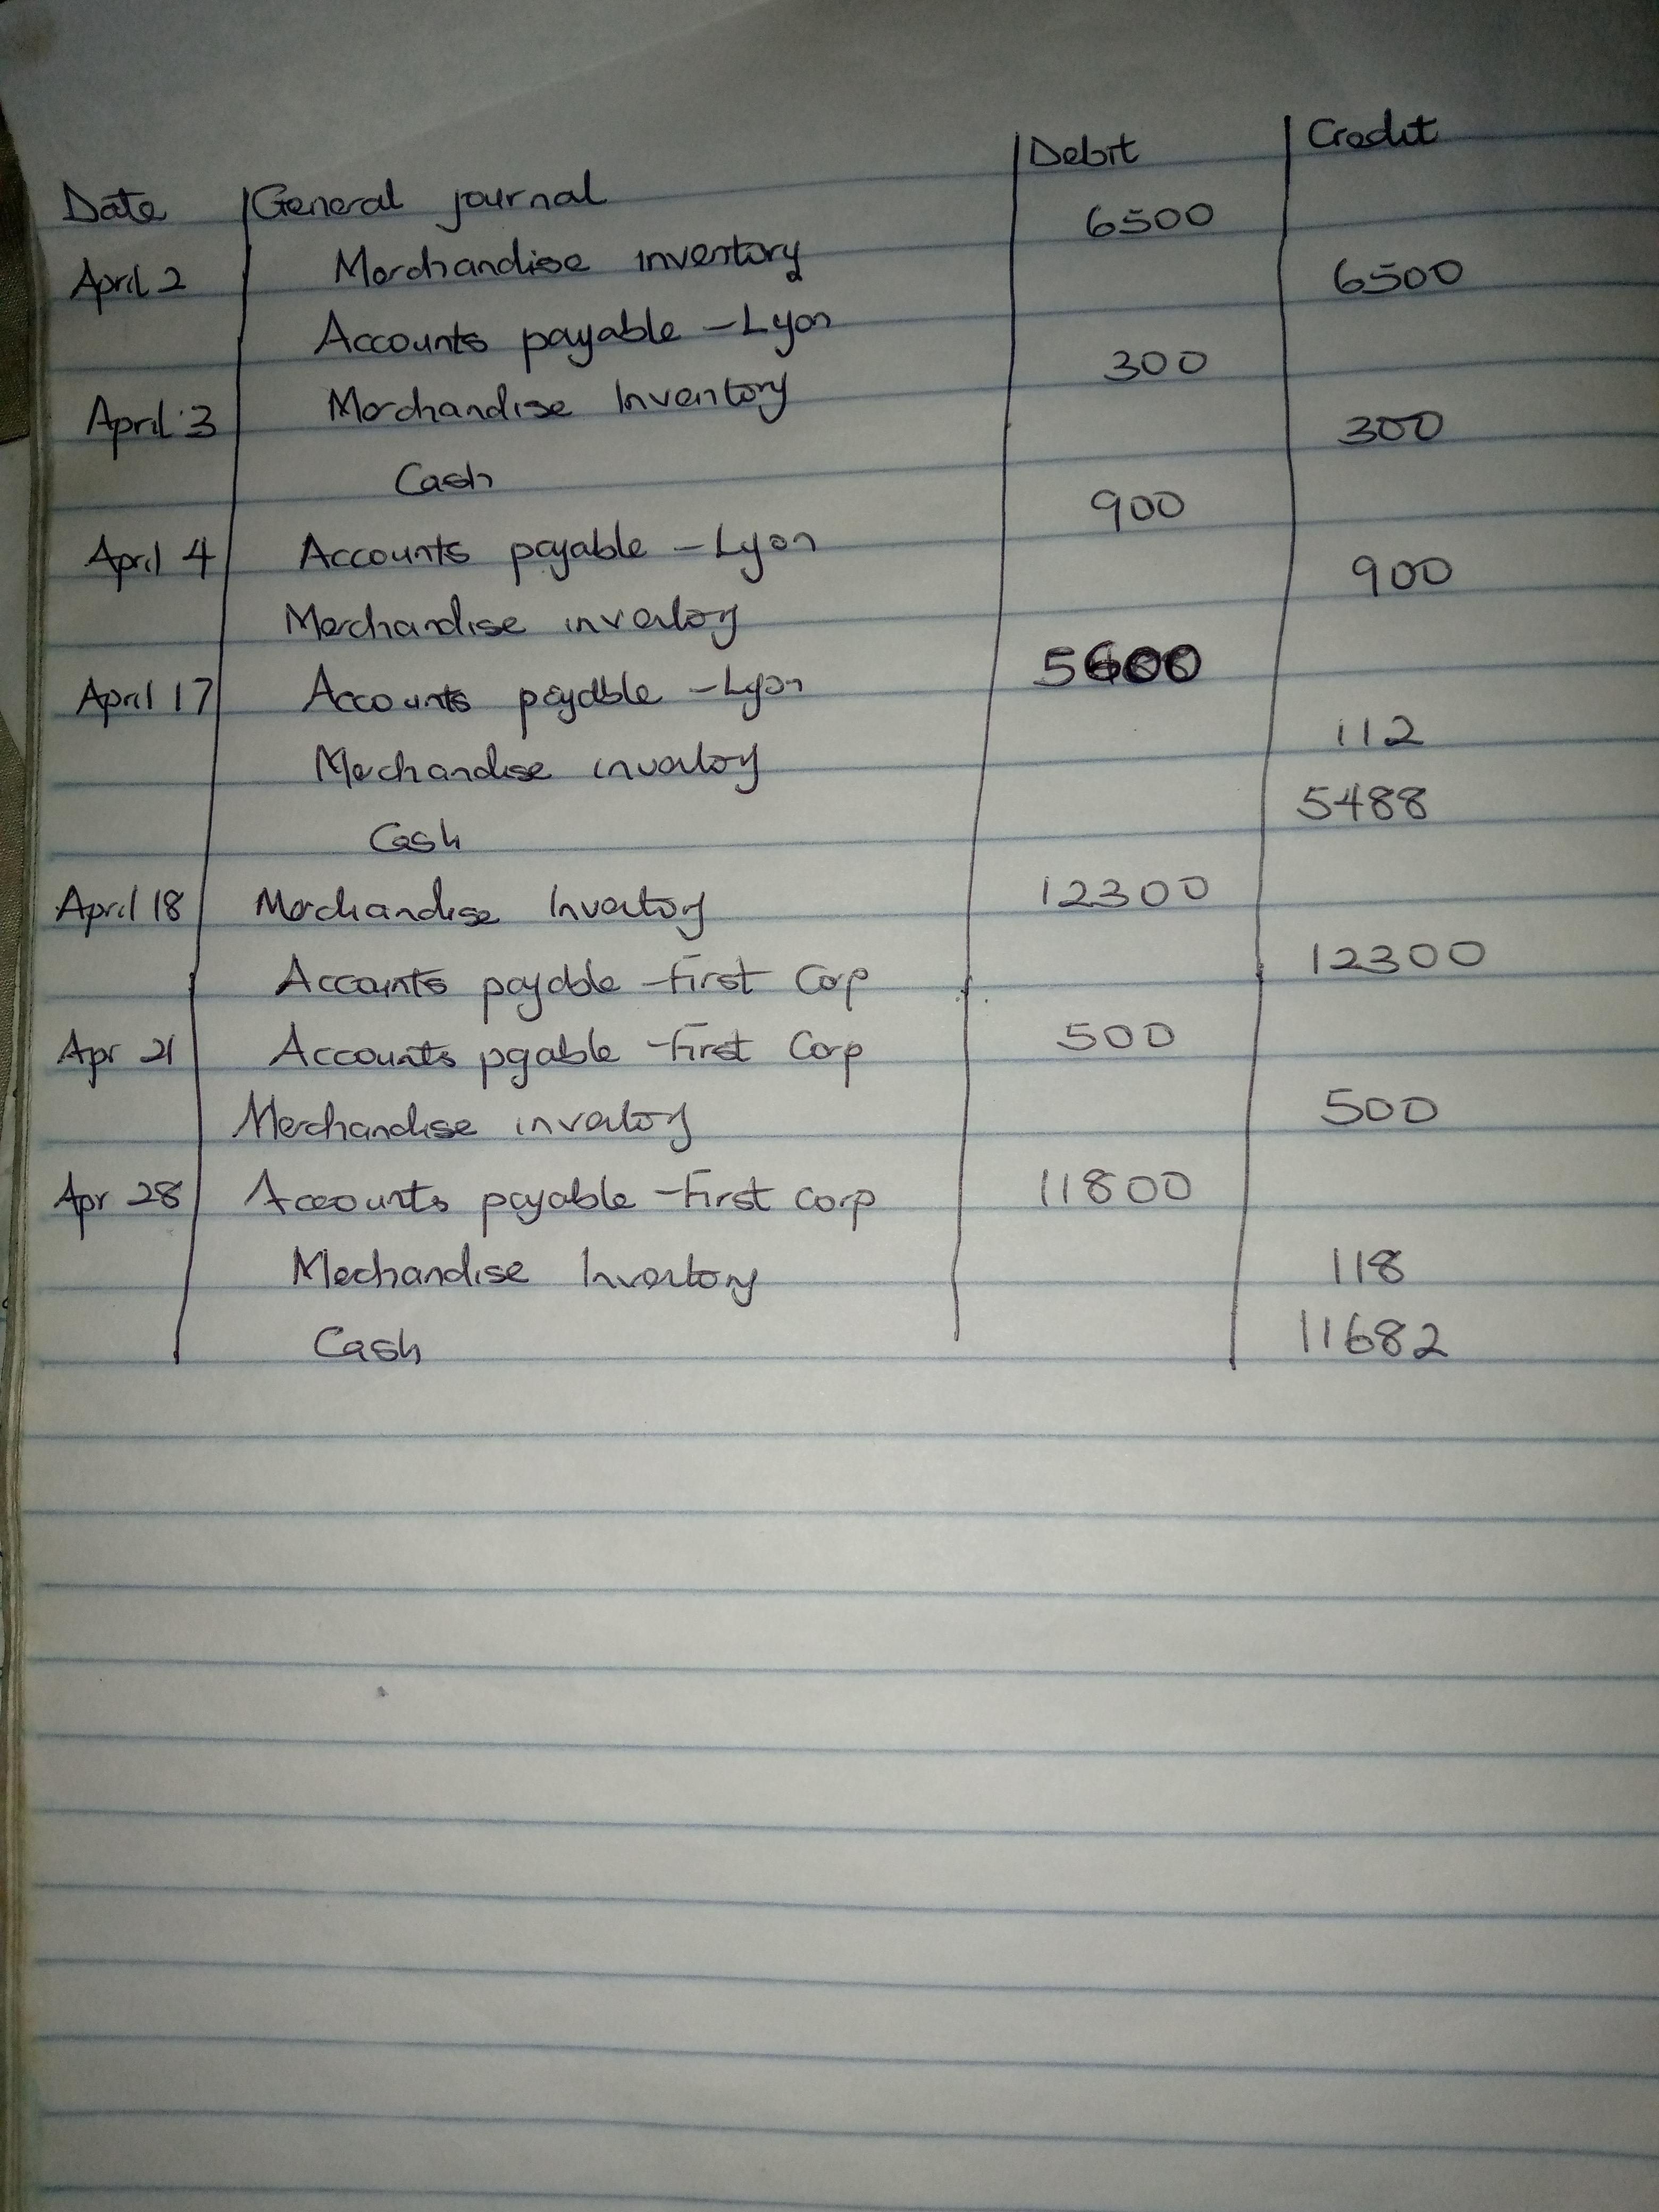 Date General journal Debit Credit
April 2 Merchandise inventory 6500
Accounts payable - Lyon 6500
April 3 Merchandise Inventory 300
Cash 300
April 4 Accounts payable - Lyon 900
Merchandise inventory 900
April 17 Accounts payable - Lyon 5600
Merchandise inventory 112
Cash 5488
April 18 Merchandise Inventory 12300
Accounts payable - First Corp 12300
Apr 21 Accounts payable - First Corp 500
Merchandise inventory 500
Apr 28 Accounts payable - First corp 11800
Mechandise Inventory 118
Cash 11682